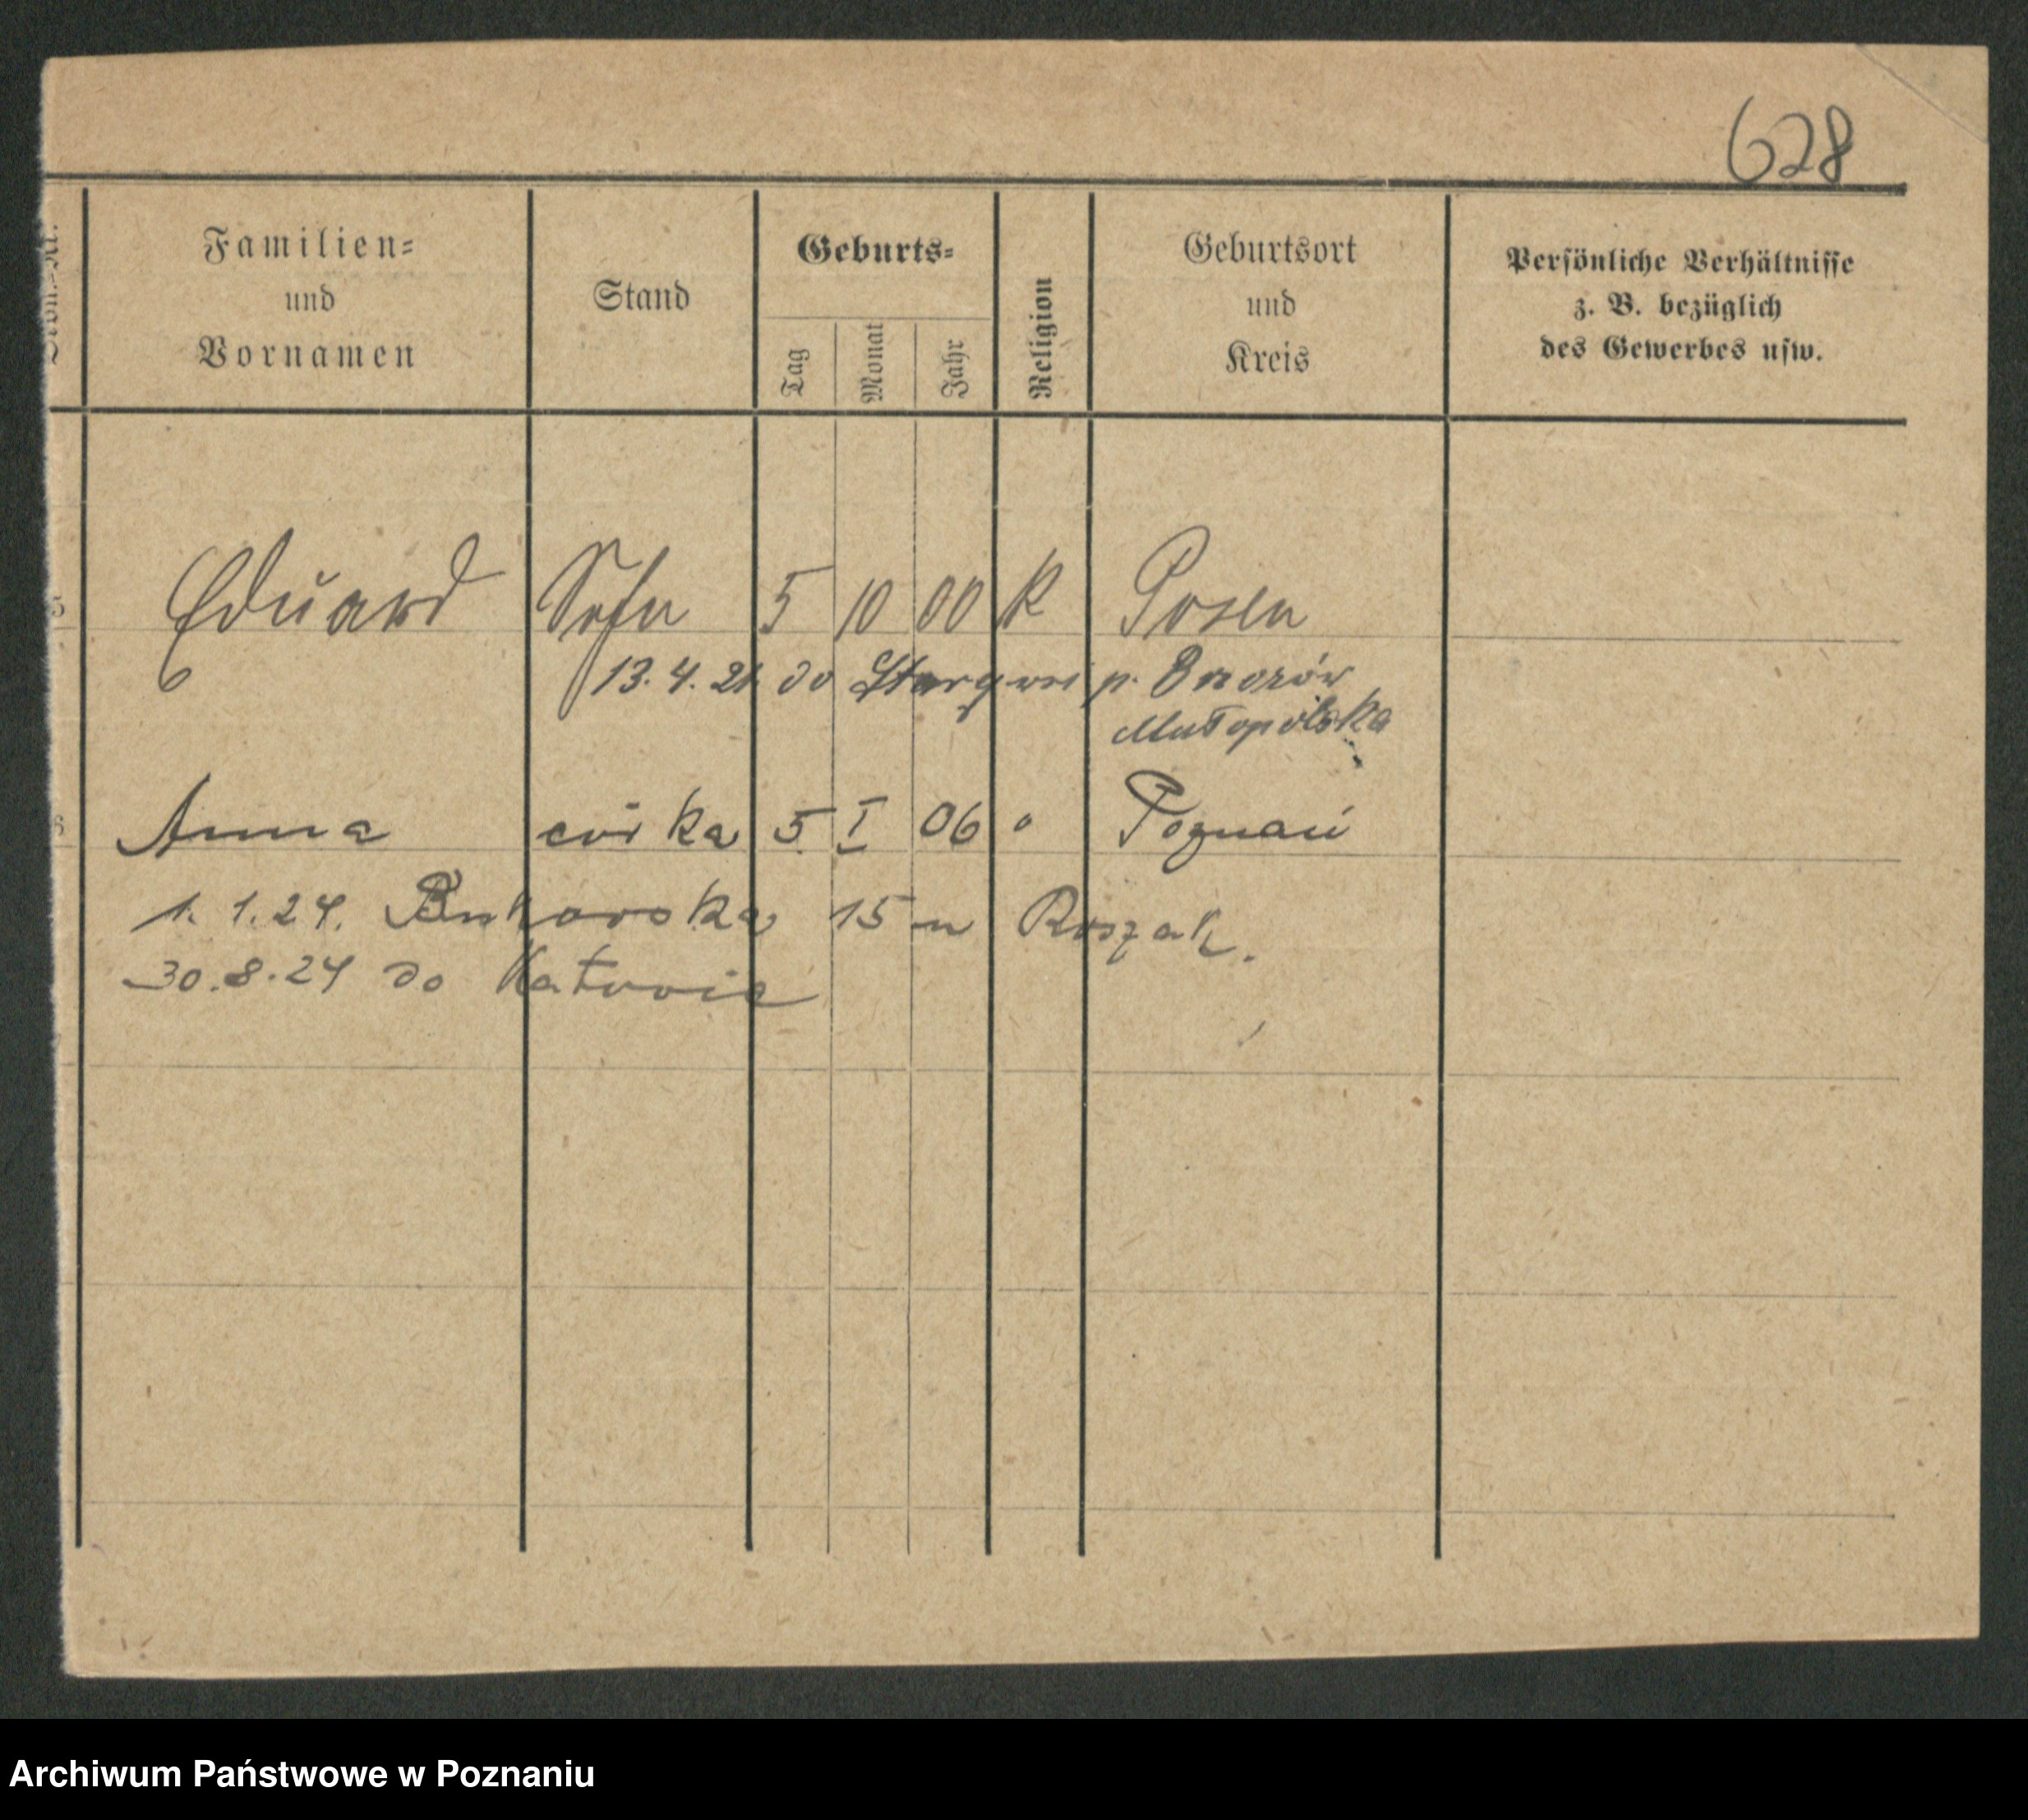 628
Familien-
und
Vornamen
Stand
Geburts-
Tag
Monat
Jahr
Religion
Geburtsort
und
Kreis
Persönliche Verhältnisse
z. B. bezüglich
des Gewerbes usw.
5 Eduard Sohn 5 10 00 K Posen
13.4.21 do p.
Małopolska
6 Anna córka 5 I 06 " Poznań
1. 1.24. Bukowska 15 u Roszak.
30.8.24 do Katowic
Archiwum Państwowe w Poznaniu